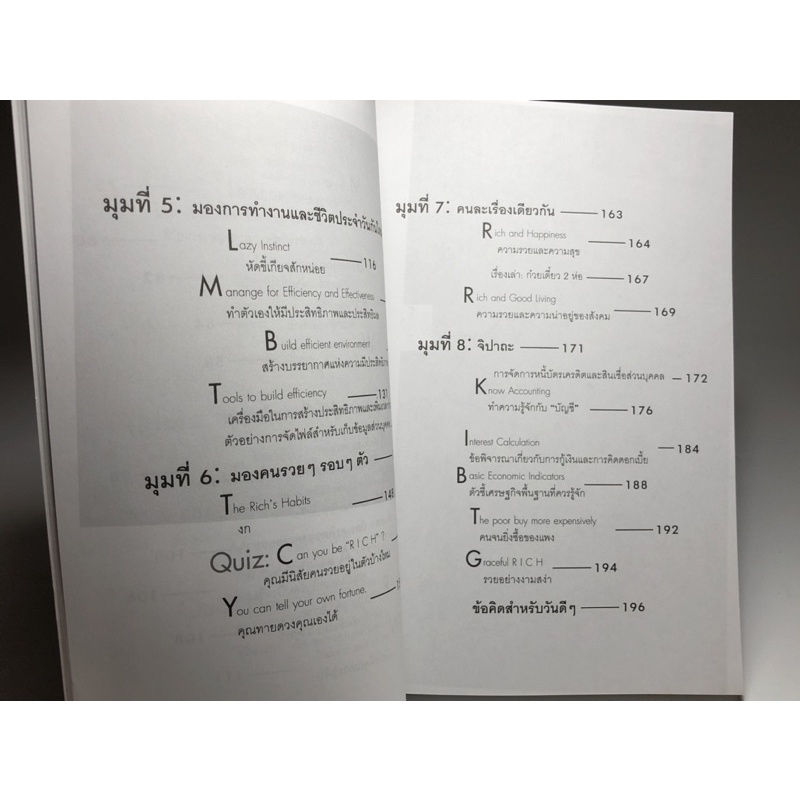 มุมที่ 5: มองการทำงานและชีวิตประจำวันกัน
Lazy Instinct
หัดขี้เกียจสักหน่อย 116
Manange for Efficiency and Effectiveness
ทำตัวเองให้มีประสิทธิภาพและประสิทธิผล
Build efficient environment
สร้างบรรยากาศแห่งความมีประสิทธิภาพ
Tools to build efficiency 131
เครื่องมือในการสร้างประสิทธิภาพและ
ตัวอย่างการจัดไฟล์สำหรับเก็บข้อมูลส่วนบุคคล
มุมที่ 6: มองคนรวยๆ รอบๆ ตัว
The Rich's Habits 148
งก
Quiz: Can you be "R I C H" ?
คุณมีนิสัยคนรวยอยู่ในตัวบ้างไหม
You can tell your own fortune.
คุณทายดวงคุณเองได้
มุมที่ 7: คนละเรื่องเดียวกัน 163
Rich and Happiness 164
ความรวยและความสุข
เรื่องเล่า: ก๋วยเตี๋ยว 2 ห่อ 167
Rich and Good Living 169
ความรวยและความน่าอยู่ของสังคม
มุมที่ 8: จิปาถะ 171
การจัดการหนี้บัตรเครดิตและสินเชื่อส่วนบุคคล 172
Know Accounting
ทำความรู้จักกับ "บัญชี" 176
Interest Calculation 184
ข้อพิจารณาเกี่ยวกับการกู้เงินและการคิดดอกเบี้ย
Basic Economic Indicators 188
ตัวชี้เศรษฐกิจพื้นฐานที่ควรรู้จัก
The poor buy more expensively 192
คนจนยิ่งซื้อของแพง
Graceful R I C H 194
รวยอย่างงามสง่า
ข้อคิดสำหรับวันดีๆ 196